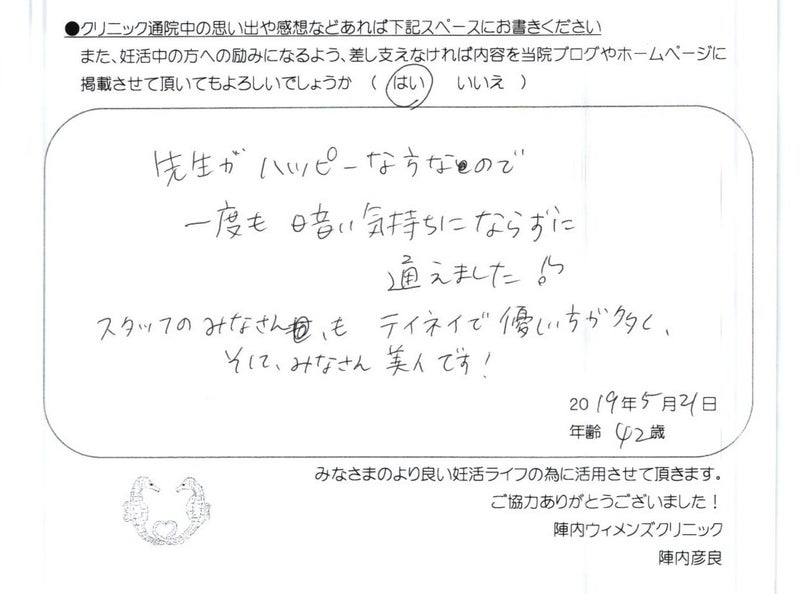 ●クリニック通院中の思い出や感想などあれば下記スペースにお書きください
また、妊活中の方への励みになるよう、差し支えなければ内容を当院ブログやホームページに
掲載させて頂いてもよろしいでしょうか （ はい いいえ ）
先生が ハッピーな方なので
一度も 暗い気持ちにならずに
通えました♪
スタッフのみなさん、も テイネイで優しい方が多く、
そして、みなさん 美人です！
2019年5月21日
年齢 42歳
みなさまのより良い妊活ライフの為に活用させて頂きます。
ご協力ありがとうございました！
陣内ウィメンズクリニック
陣内彦良